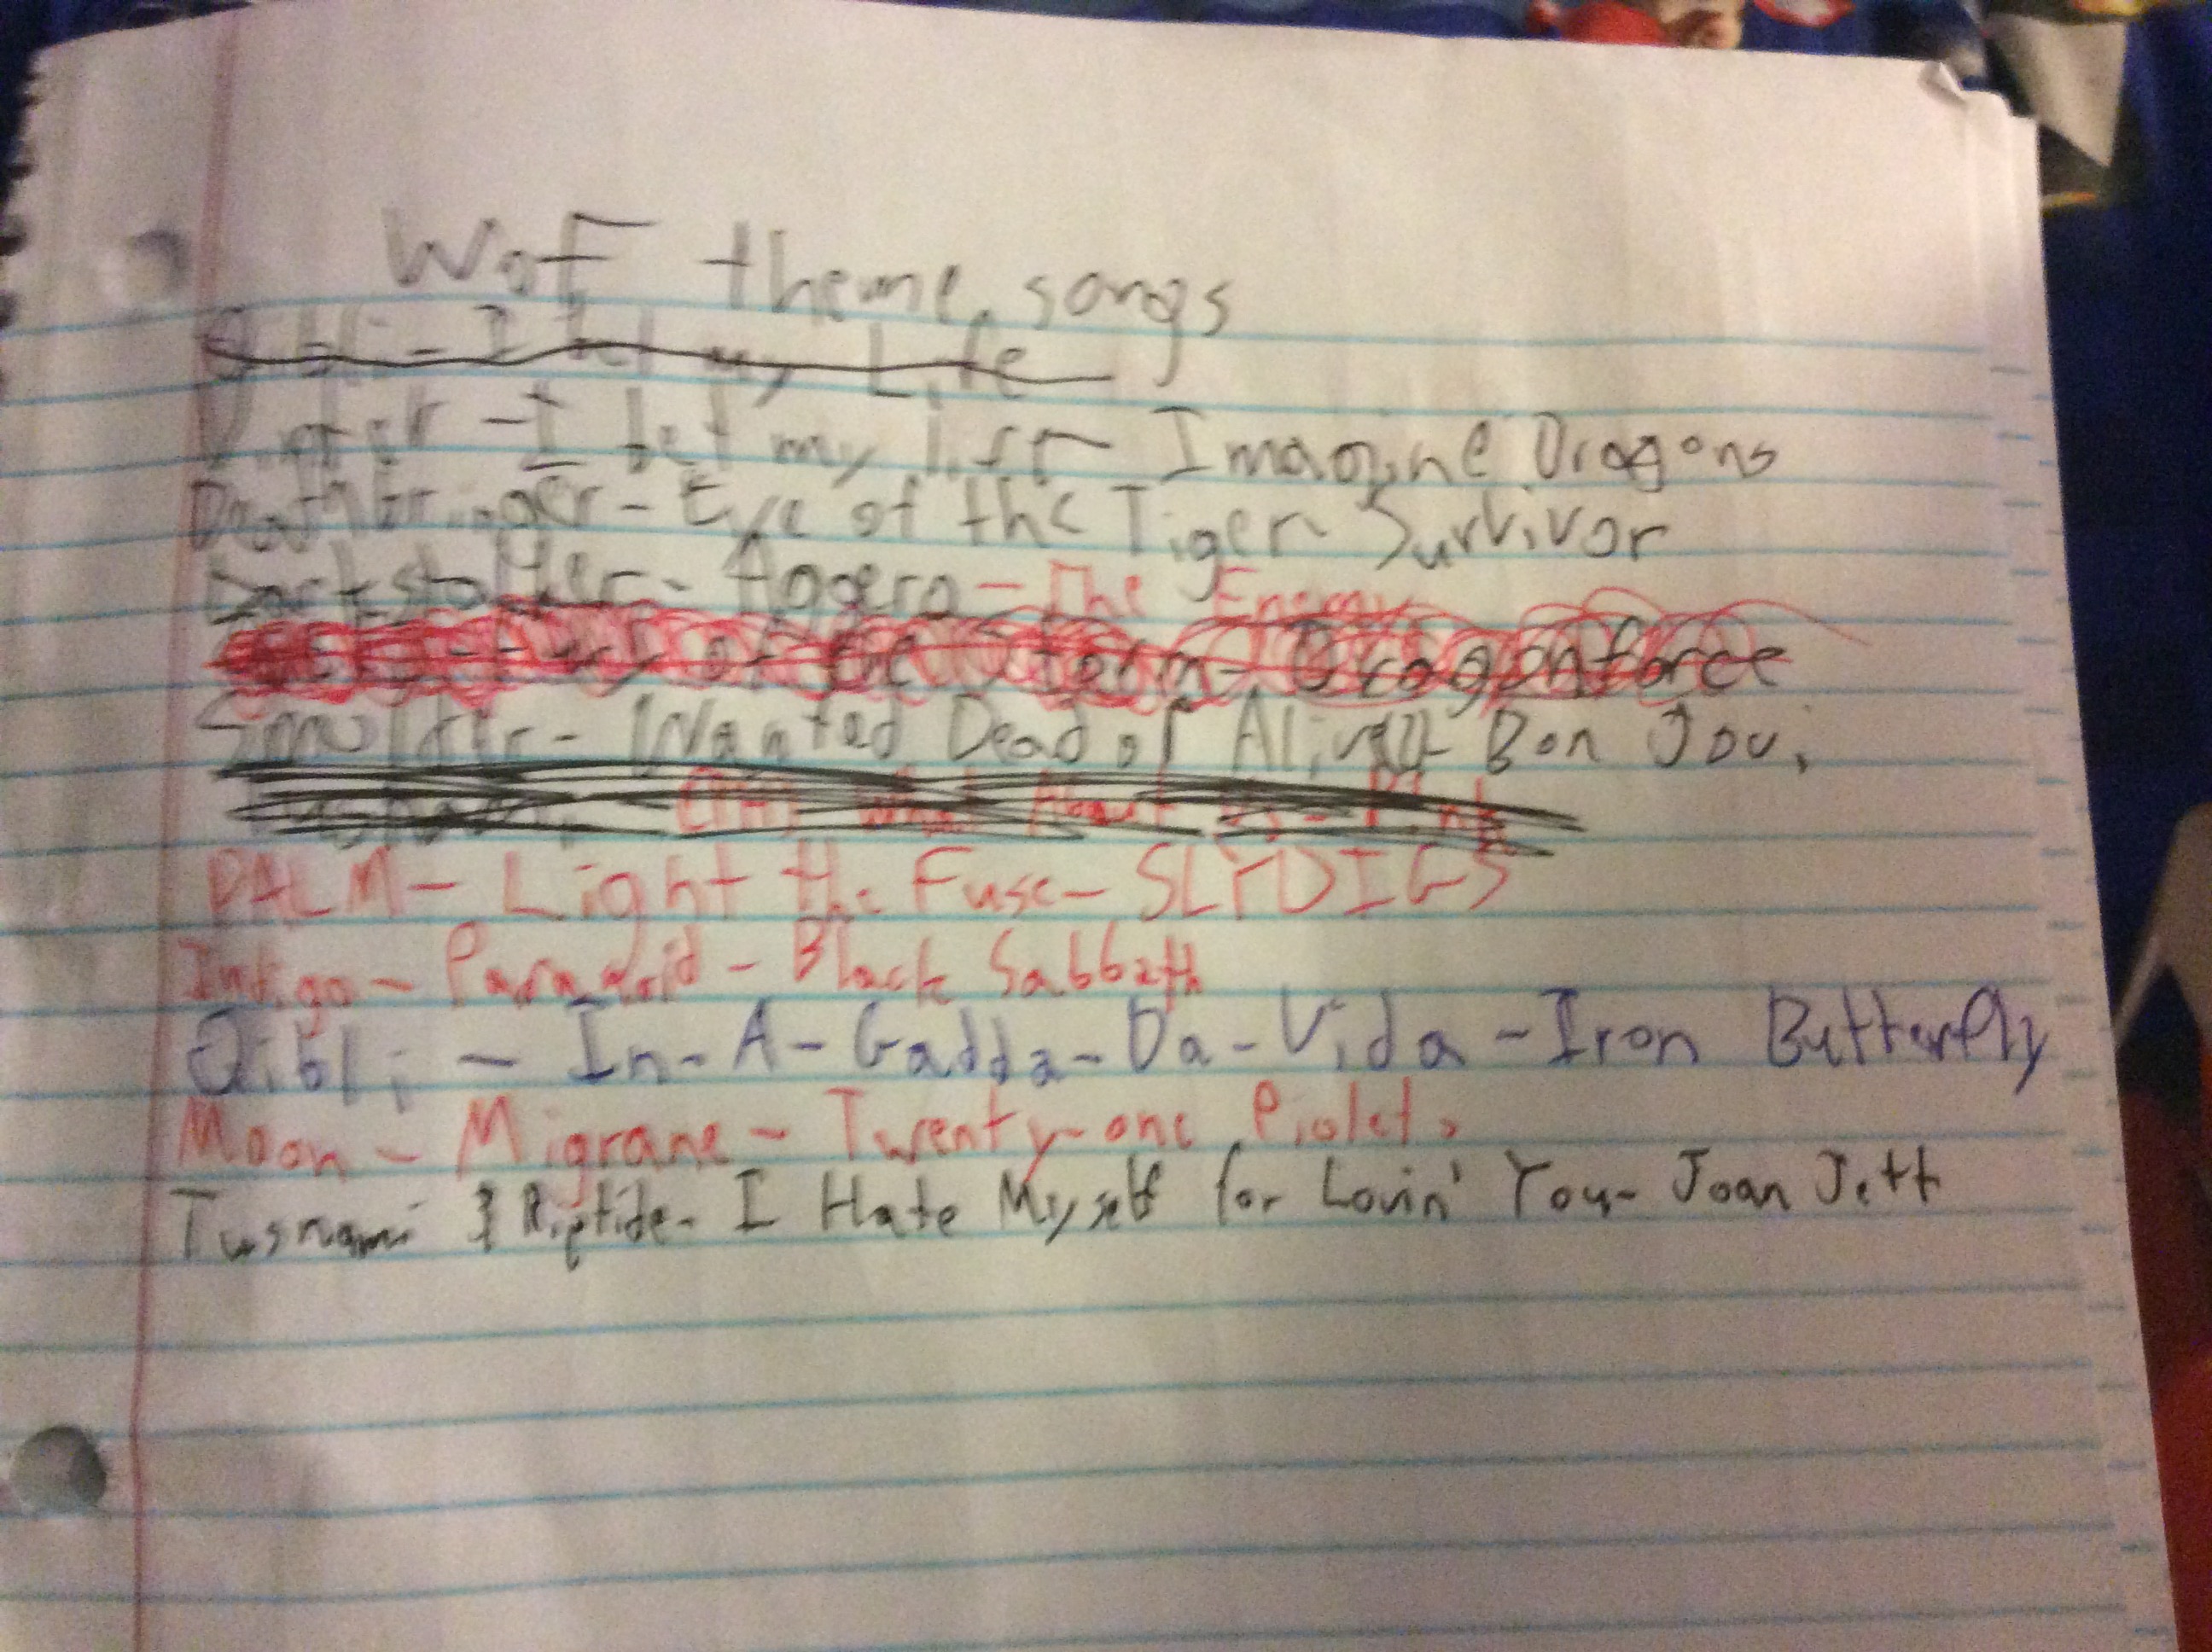 WoF theme songs
Qibli - I bet my Life
Winter - I bet my life Imagine Dragons
Deathbringer - Eye of the Tiger Survivor
Darkstalker - Aggero - The Enemy
Fury of the Storm - Dragonforce
Smolder - Wanted Dead of Alive Bon Jovi
What About Us - Pink
PALM - Light the Fuse - SLYDIGS
Indigo - Paranoid - Black Sabbath
Qibli - In-A-Gadda-Da-Vida - Iron Butterfly
Moon - Migrane - Twenty-one Piolets
Tusnami & Riptide - I Hate Myself for Lovin' You - Joan Jett